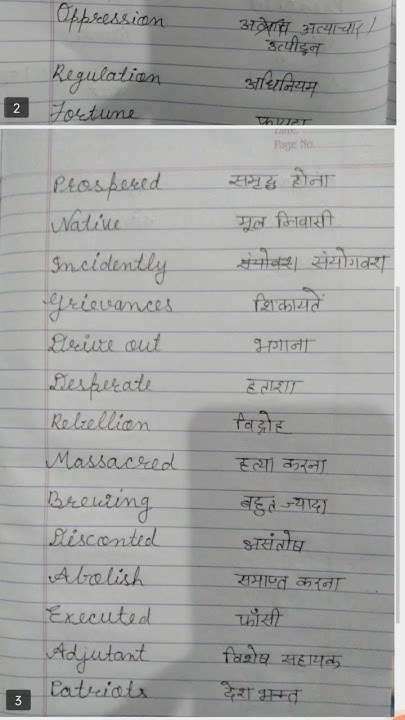 Oppression अत्याचार/
उत्पीड़न
Regulation अधिनियम
2
Fortune फायदा
Page No.
Prospered समृद्ध होना
Native मूल निवासी
Incidently संयोगवश
Grievances शिकायतें
Drive out भगाना
Desperate हताशा
Rebellion विद्रोह
Massacred हत्या करना
Brewing बहुत ज्यादा
Disconted असंतोष
Abolish समाप्त करना
Executed फाँसी
Adjutant विशेष सहायक
3
Patriots देश भक्त